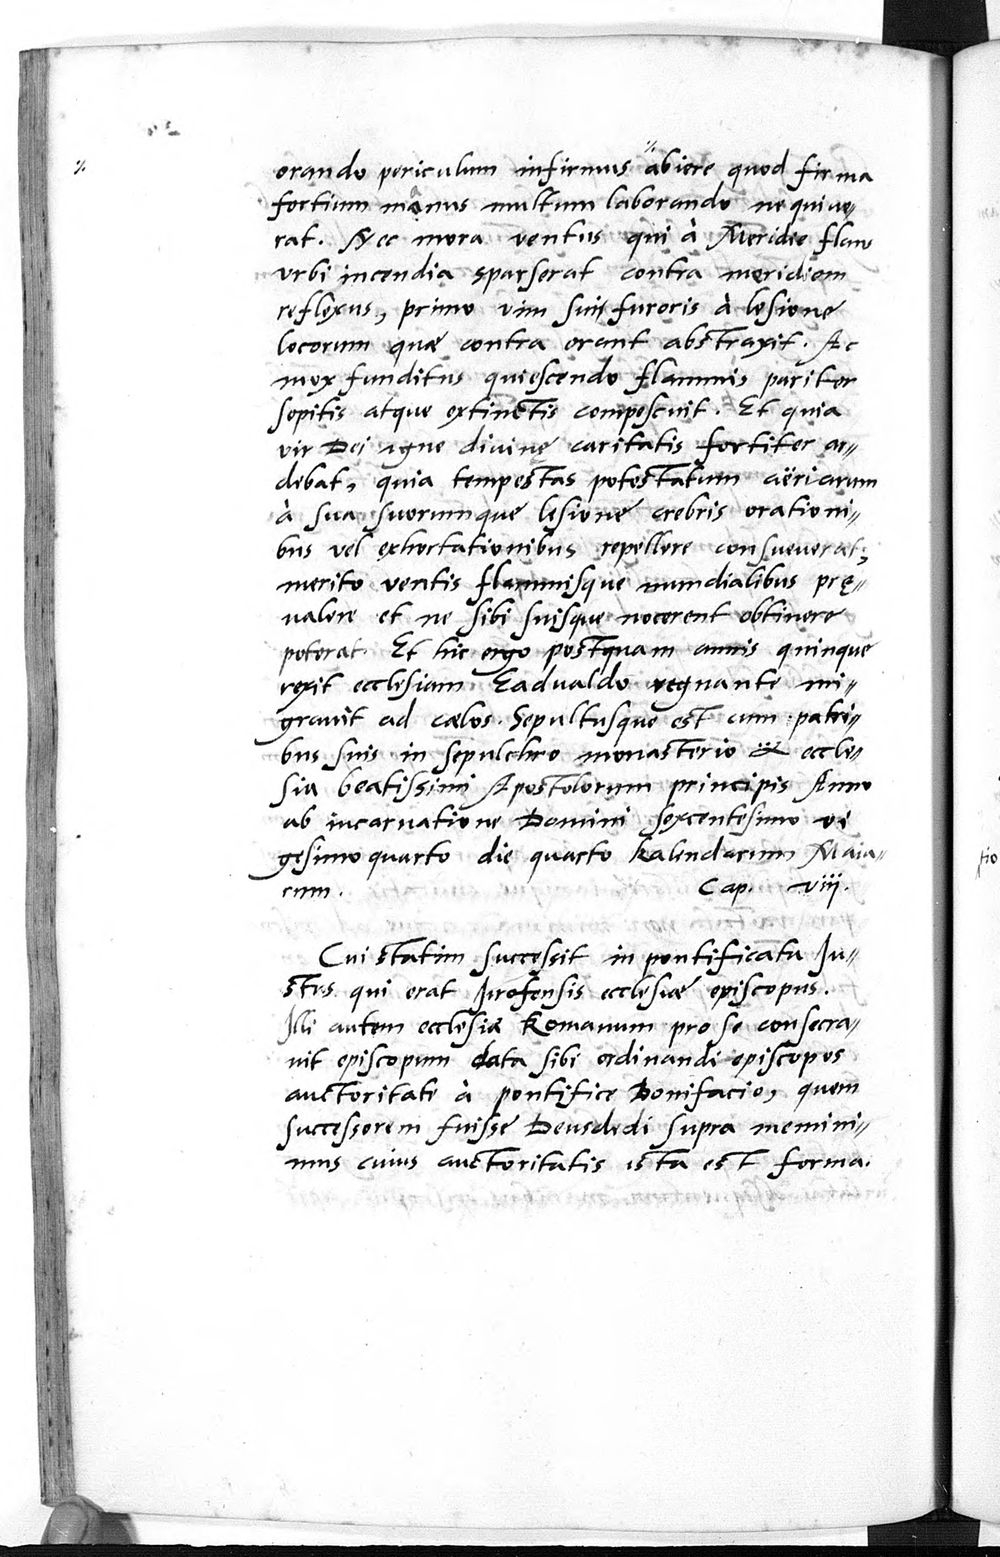 orando periculum infirmus abiere quod firma
fortium manus multum laborando nequiue„
rat. Nec mora ventus qui à Meridie flans
vrbi incendia sparserat contra meridiem
reflexus, primo vim sui furoris à lesione
locorum quæ contra erant abstraxit. Ac
mox funditus quiescendo flammis pariter
sopitis atque extinctis compescuit. Et quia
vir Dei igne diuinę caritatis fortiter ar„
debat, quia tempestas potestatum aëriarum
à sua suorumque lesione crebris orationi„
bus vel exhortationibus repellere consueuerat,
merito ventis flammisque mundialibus prę„
ualere et ne sibi suisque nocerent obtinere
poterat. Et hic ergo postquam annis quinque
rexit ecclesiam Eadualdo regnante mi„
grauit ad cælos. Sepultusque est cum patri„
bus suis in sepulchro monasterio & eccle„
sia beatissimi Apostolorum principis Anno
ab incarnatione Domini sexcentesimo vi
gesimo quarto die quarto kalendarum Maia„
rum. Cap. viij.
Cui statim successit in pontificatu Ju„
stus qui erat Jrofensis ecclesiæ episcopus.
Jlli autem ecclesiæ Romanum pro se consecra„
uit episcopum data sibi ordinandi episcopos
auctoritate à pontifice Bonifacio, quem
successorem fuisse Deusdedi supra memini„
mus cuius auctoritatis ista est forma.